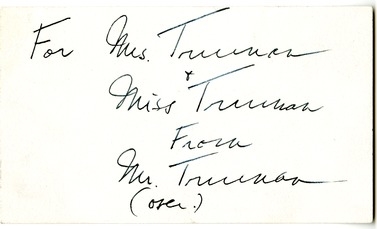 For Mrs. Truman
&
Miss Truman
From
Mr. Truman
(over.)